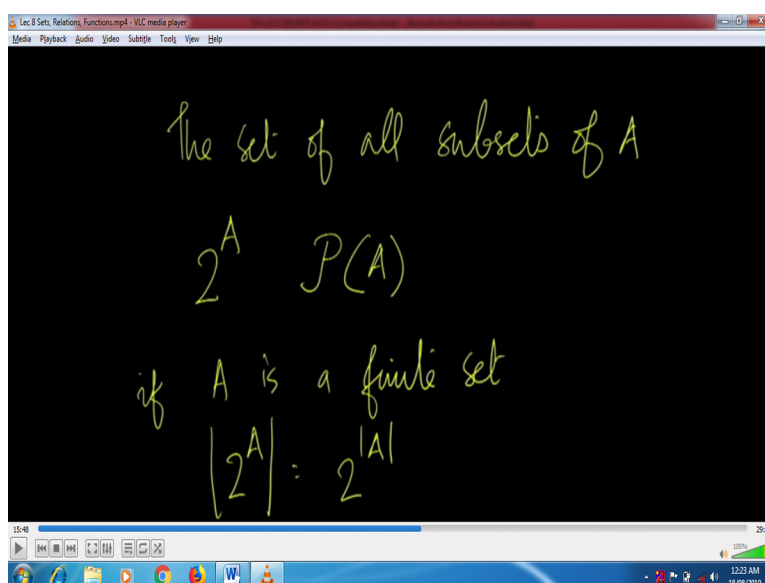 Lec 8 Sets, Relations, Functions.mp4 - VLC media player
Media Playback Audio Video Subtitle Tools View Help
The set of all subsets of A
2^A P(A)
if A is a finite set
|2^A| = 2^|A|
15:48 29:
105%
12:23 AM